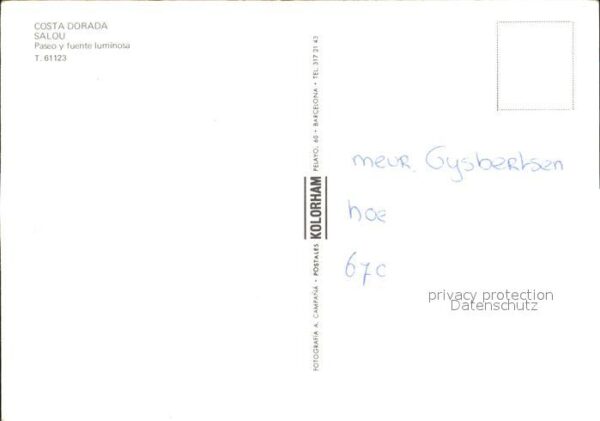 COSTA DORADA
SALOU
Paseo y fuente luminosa
T. 61123
FOTOGRAFIA A. CAMPAÑA - POSTALES KOLORHAM PELAYO, 60 - BARCELONA - TEL. 317 21 43
meur. Gysbertsen
hoe
67c
privacy protection
Datenschutz